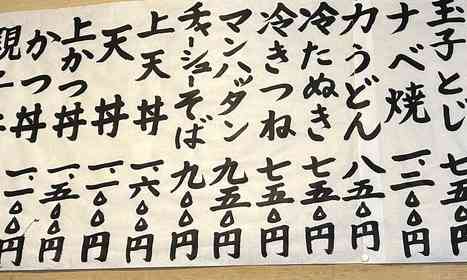 玉子とじ 七五
ナベ焼 一、三〇〇円
力うどん 八五〇円
冷たぬき 七五〇円
冷きつね 七五〇円
マンハッタン 九五〇円
チャーシューそば 九〇〇円
上天丼 一、六〇〇円
天丼 一、二〇〇円
上かつ丼 一、五〇〇円
かつ丼 〇〇円
親子丼 〇〇円